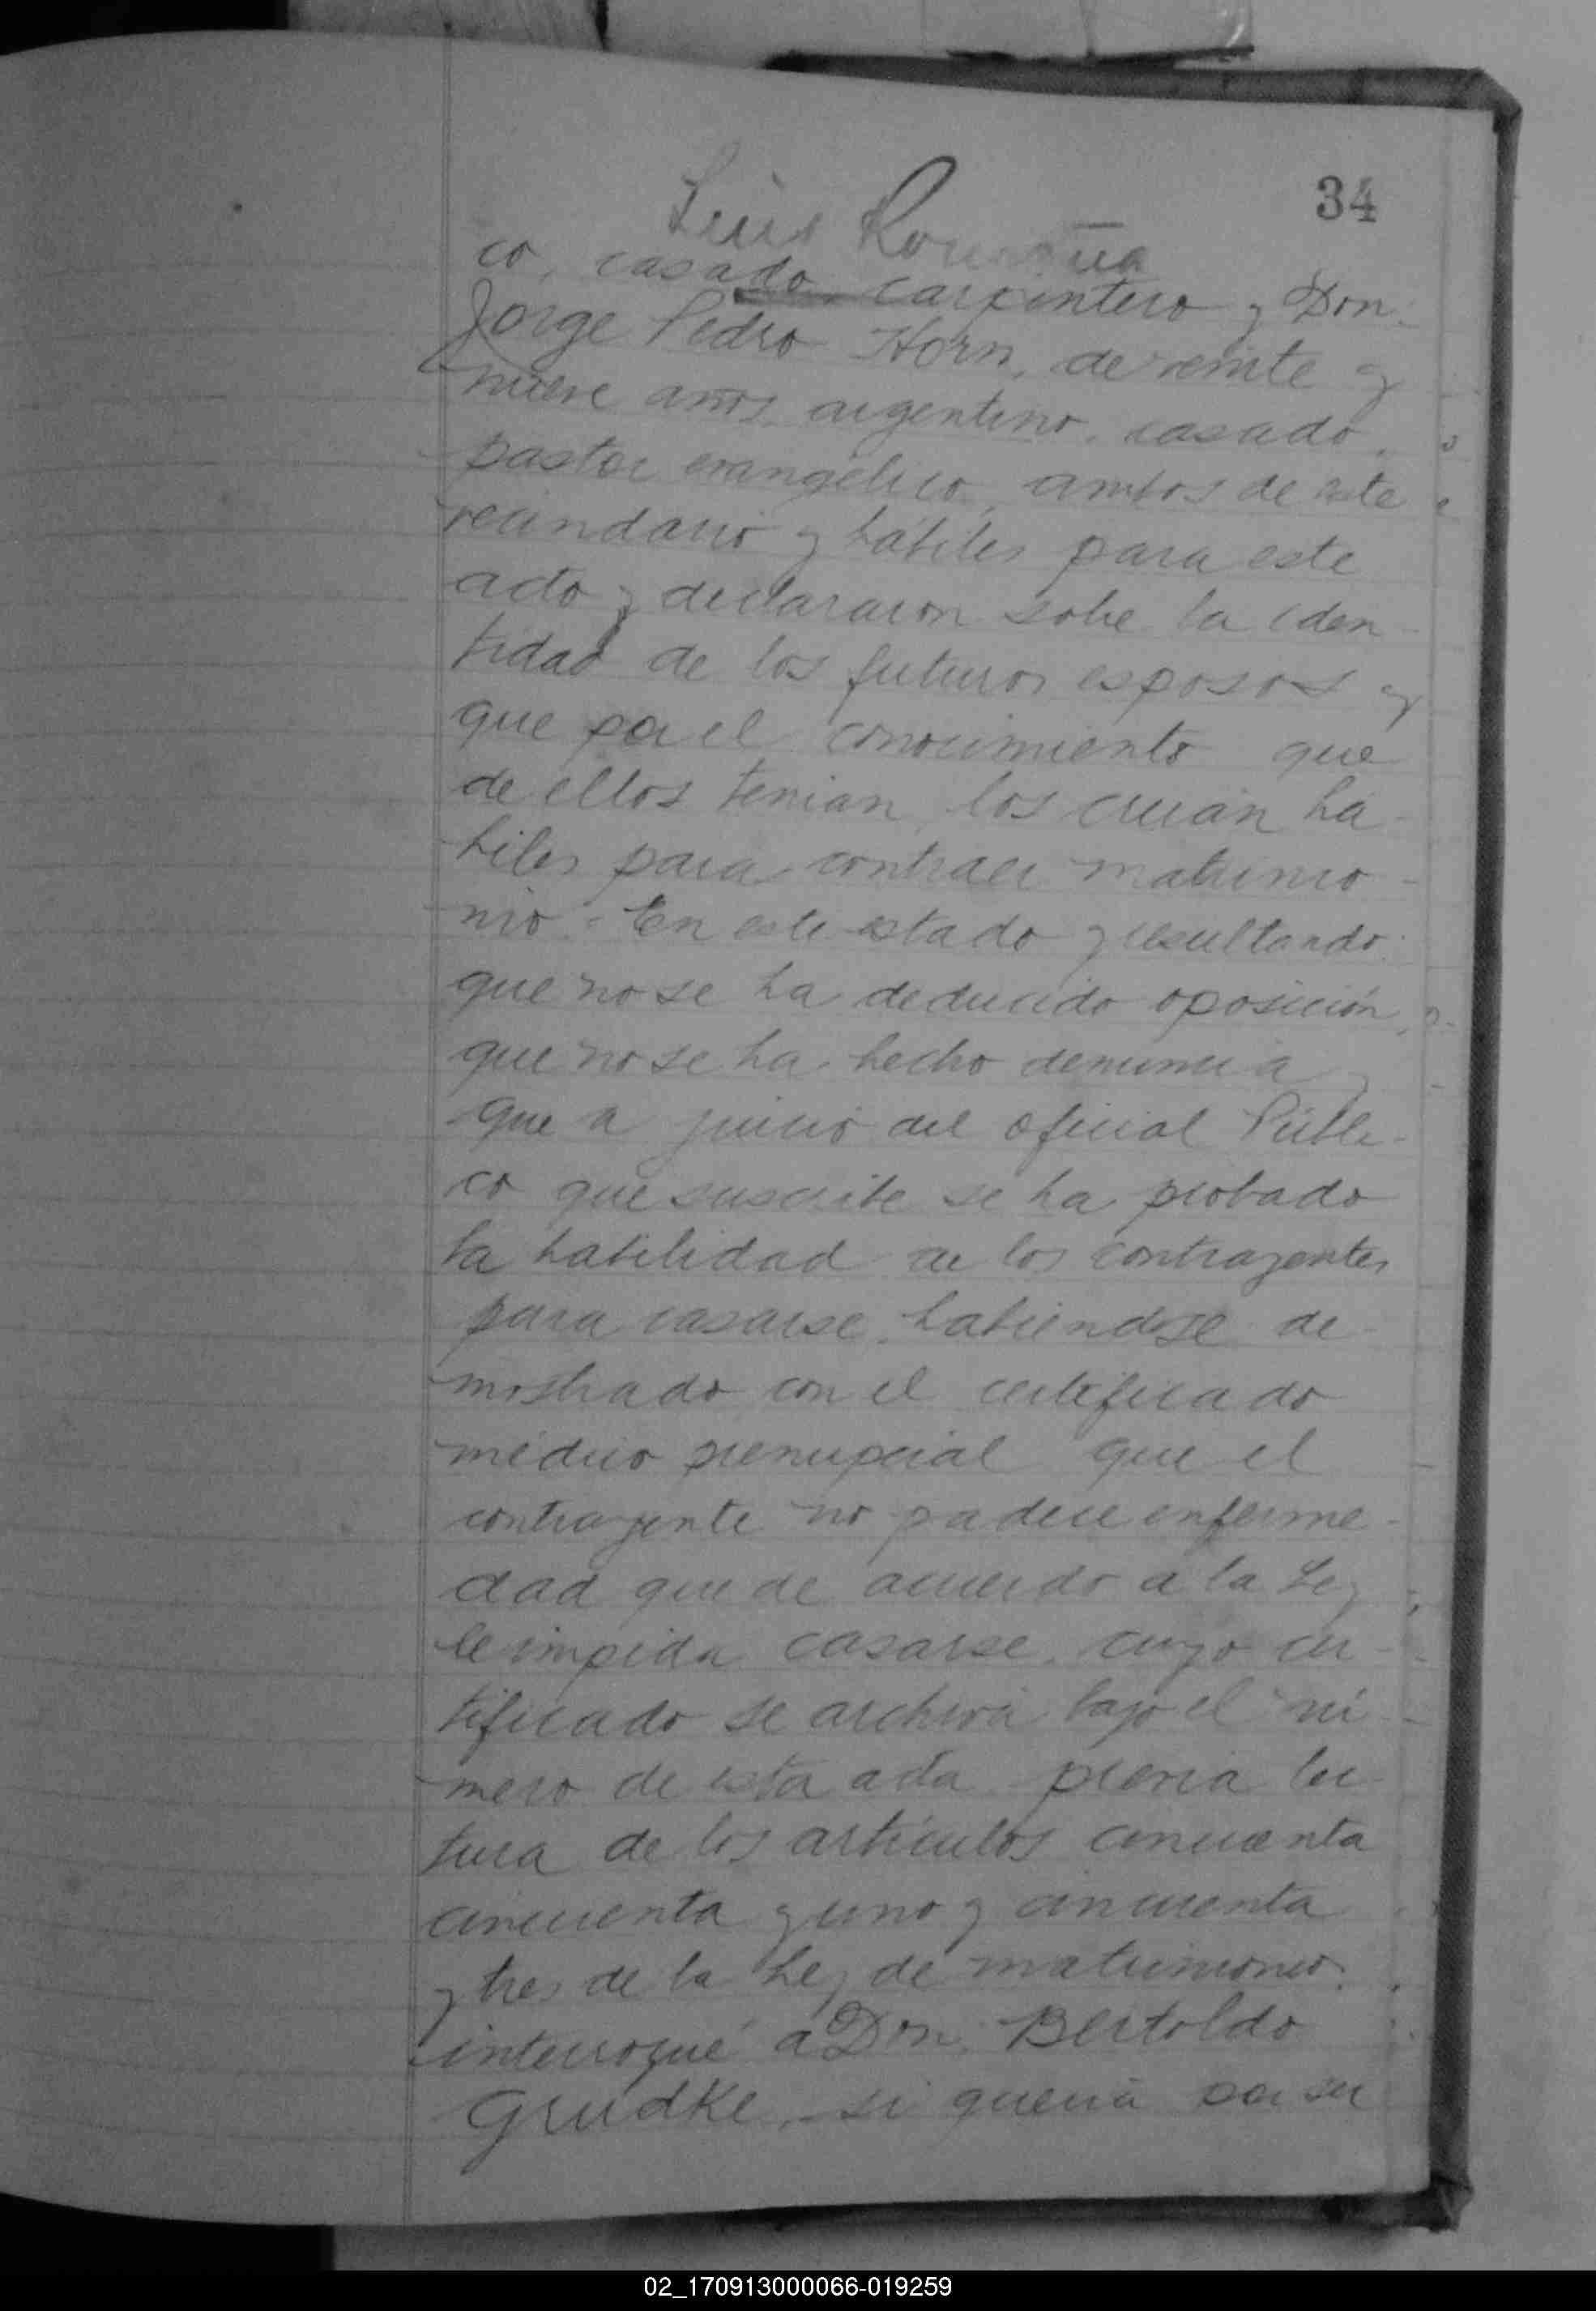 34
Luis
co, casado, carpintero y Don
Jorge Pedro Horn, de veinte y
nueve años, argentino, casado,
pastor evangélico, ambos de este
vecindario y hábiles para este
acto y declararon sobre la iden-
tidad de los futuros esposos y
que por el conocimiento que
de ellos tenian, los creian há-
biles para contraer matrimo-
nio.- En este estado y resultando:
que no se ha deducido oposición,
que no se ha hecho denuncia y
que a juicio del oficial Públi-
co que suscribe se ha probado
la habilidad de los contrayentes
para casarse, habiendose de-
mostrado con el certificado
médico prenupcial que el
contrayente no padece enferme-
dad que de acuerdo a la Ley
le impida casarse, cuyo cer-
tificado se archiva bajo el nú-
mero de esta acta previa lec-
tura de los artículos cincuenta
cincuenta y uno y cincuenta
y tres de la Ley de matrimonio.
interrogué a Don Bertoldo
Grudke, si queria por su
02_170913000066-019259